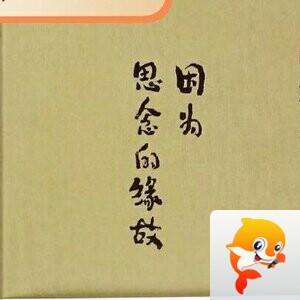 因为
思念的缘故